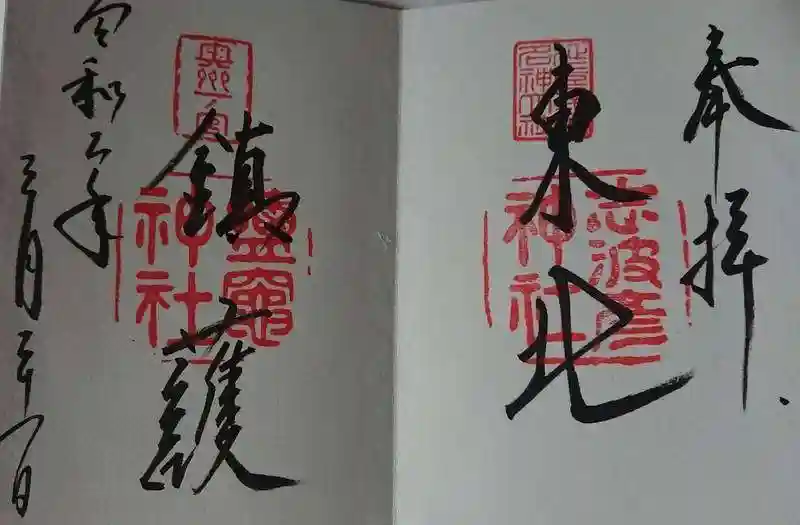 奉拝
東北
延喜式名神大社
志波彦
神社
鎮護
奥州一宮
鹽竈
神社
令和二年
三月二十一日